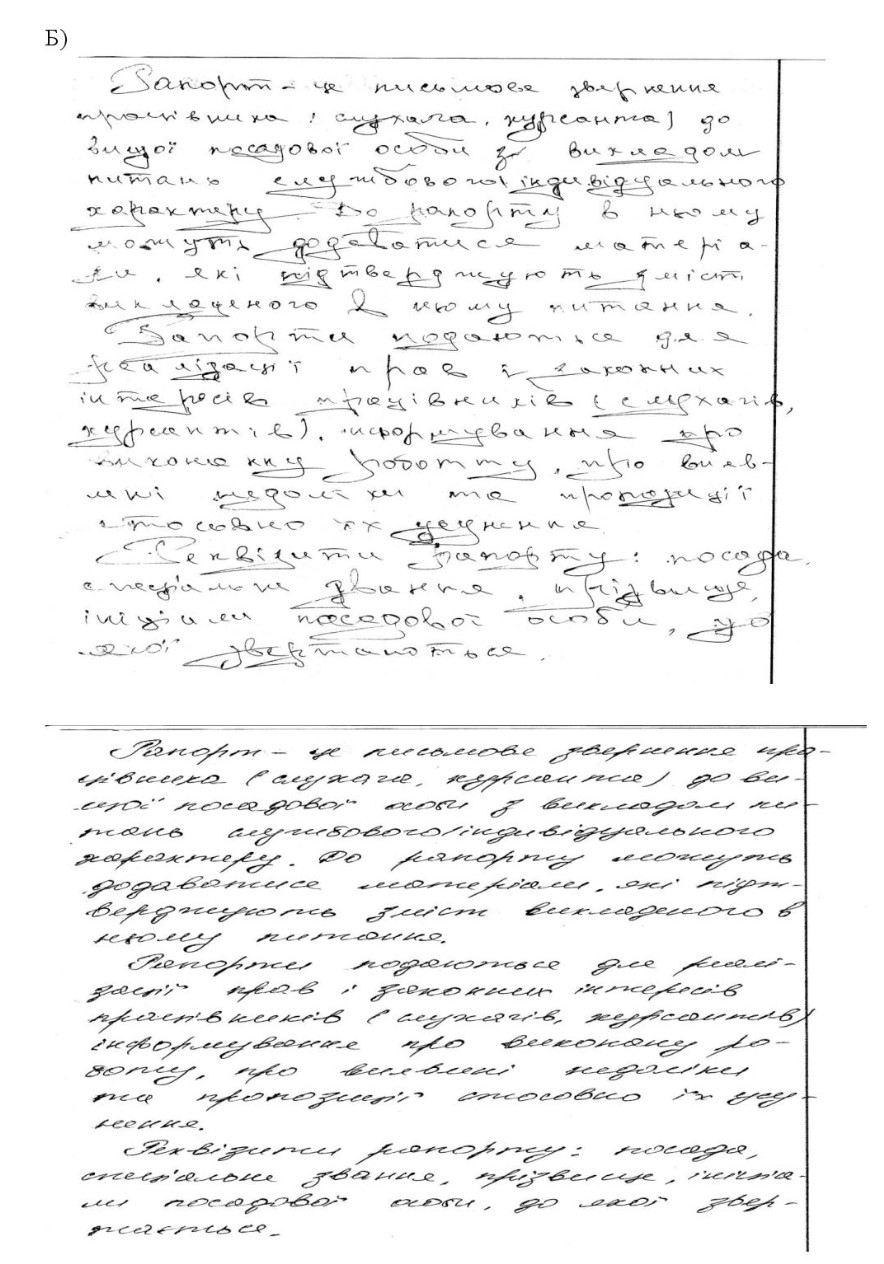 Б)
Рапорт – це письмове звернення
працівника (слухача, курсанта) до
вищої посадової особи з викладом
питань службового/індивідуального
характеру. До рапорту в ньому
можуть додаватися матеріа-
ли, які підтверджують зміст
викладеного в ньому питання.
Рапорти подаються для
реалізації прав і законних
інтересів працівників (слухачів,
курсантів), інформування про
виконану роботу, про вияв-
лені недоліки та пропозиції
стосовно їх усунення.
Реквізити рапорту: посада,
спеціальне звання, прізвище,
ініціали посадової особи, до
якої звертаються.
Рапорт – це письмове звернення пра-
цівника (слухача, курсанта) до ви-
щої посадової особи з викладом пи-
тань службового/індивідуального
характеру. До рапорту можуть
додаватися матеріали, які підт-
верджують зміст викладеного в
ньому питання.
Рапорти подаються для реалі-
зації прав і законних інтересів
працівників (слухачів, курсантів)
інформування про виконану ро-
боту, про виявлені недоліки
та пропозиції стосовно їх усу-
нення.
Реквізити рапорту: посада,
спеціальне звання, прізвище, ініціа-
ли посадової особи, до якої звер-
тається.